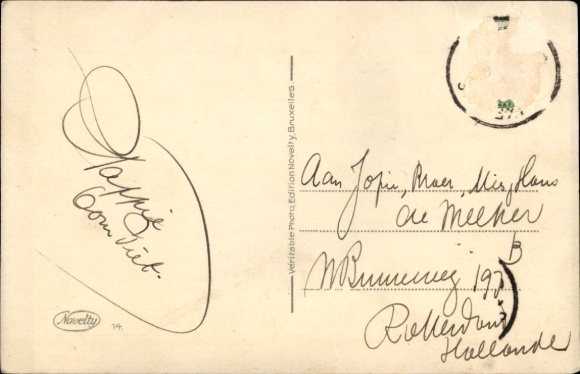 Pappie
Oom Piet.
Novelty
14.
Véritable Photo, Edition Novelty, Bruxelles.
Aan Jopie, Broer, Mis, Hans
de Meeker
B
197
Rotterdam
Hollande